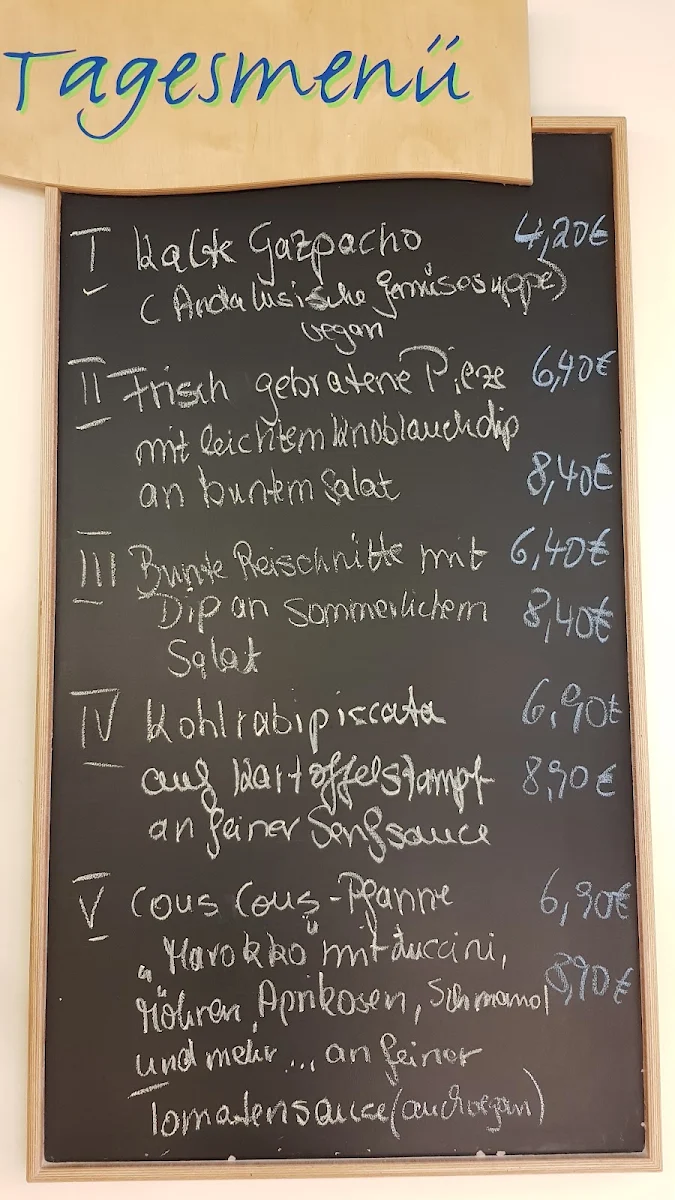 Tagesmenü
I Kalte Gazpacho 4,20€
(Andalusische Gemüsesuppe)
vegan
II Frisch gebratene Pilze 6,40€
mit leichtem Knoblauchdip
an buntem Salat 8,40€
III Bunte Reisschnitte mit 6,40€
Dip an Sommerlichem 8,40€
Salat
IV Kohlrabipiccata 6,90€
auf Kartoffelstampf 8,90€
an feiner Senfsauce
V Cous Cous-Pfanne 6,90€
„Marokko" mit Zuccini,
Möhren, Aprikosen, 8,90€
und mehr... an feiner
Tomatensauce (auch vegan)